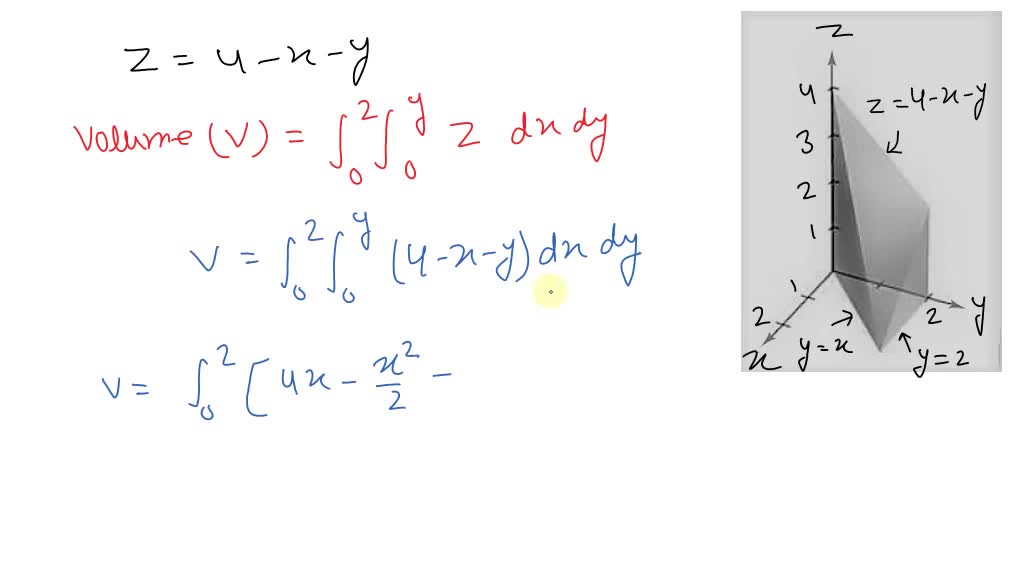 z = 4 - x - y
Volume (V) = ∫₀² ∫₀^y z dx dy
V = ∫₀² ∫₀^y (4 - x - y) dx dy
V = ∫₀² [4x - x²/2 -
z
4
z = 4 - x - y
3
2
1
1
2
x
y = x
2
y
y = 2